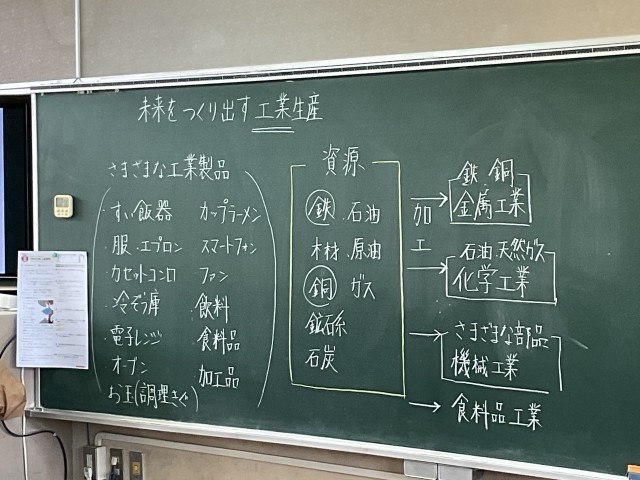 未来をつくり出す工業生産
さまざまな工業製品
・すい飯器 カップラーメン
・服・エプロン スマートフォン
・カセットコンロ ファン
・冷ぞう庫 飲料
・電子レンジ 食料品
・オーブン 加工品
お玉(調理きぐ)
資源
鉄・石油
木材・原油
銅 ガス
鉱石系
石炭
加工
鉄 銅
金属工業
石油、天然ガス
化学工業
さまざまな部品
機械工業
食料品工業